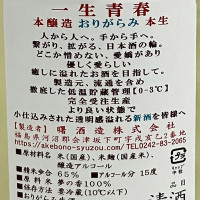 一生青春
本醸造 おりがらみ 本生
人から人へ。手から手へ。
繋がり、拡がる、日本酒の輪。
どこか憎めない、愛嬌があり
優しく愛らしい
癒しに溢れたお酒を目指して。
製造元、流通を含め
徹底した低温貯蔵管理(0〜-3℃)
完全受注生産
より良い状態で
小仕込みされた透明感溢れる新酒を皆様へ
【製造者】曙酒造株式会社
福島県河沼郡会津坂下町字戌亥乙2番地
https://akebono-syuzou.com TEL0242-83-2065
■原材料名 米(国産)、米麹(国産米)、
醸造アルコール
■精米歩合 65% ■アルコール分 15度
■原料米 夢の香100%
■保存方法 要冷蔵(10℃以下)
清酒